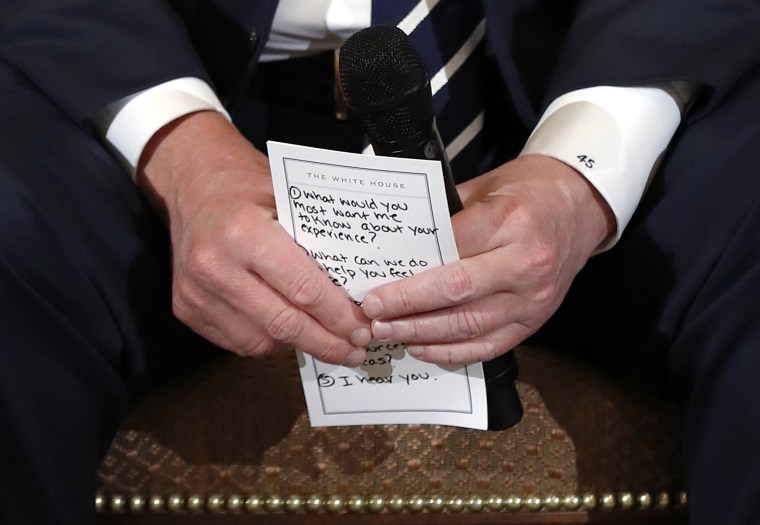 THE WHITE HOUSE
① What would you
most want me
to know about your
experience?
What can we do
help you feel
e?
rces
eas?
⑤ I hear you.
45